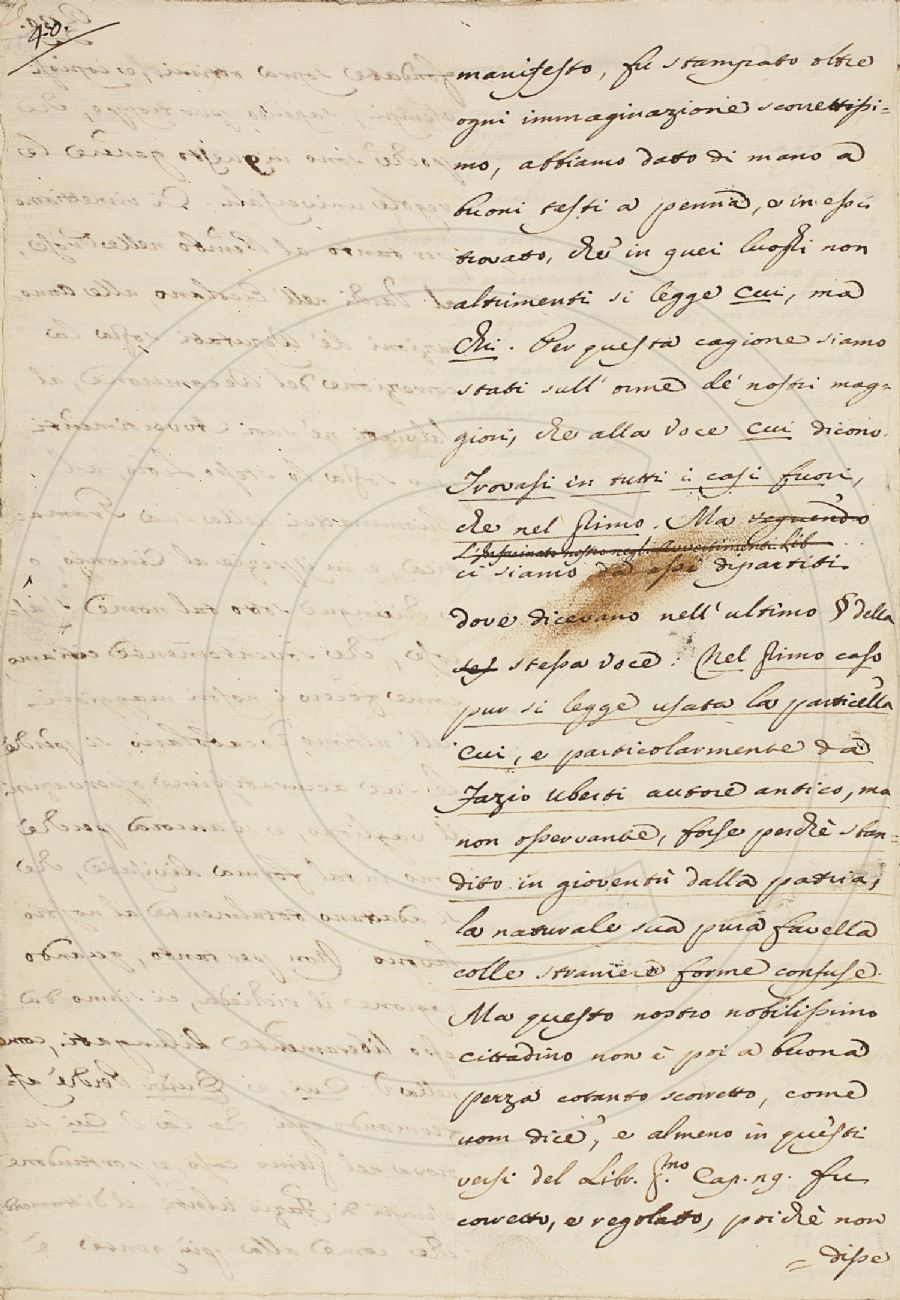 40.
manifesto, fu stampato oltre
ogni immaginazione scorrettissi=
mo, abbiamo dato di mano a
buoni testi a penna, e in essi
trovato, che in quei luoghi non
altrimenti si legge cui, ma
chi. Per questa cagione siamo
stati sull' orme de' nostri mag=
giori, che alla voce cui dicono.
Trovasi in tutti i casi fuori,
che nel primo. Ma seguendo
L'Infarinato nostro negli Avvertimenti Lib
ci siamo da essi dipartiti
dove dicevano nell' ultimo § della
stessa voce: Nel primo caso
pur si legge usata la particella
cui, e particolarmente da
Fazio Uberti autore antico, ma
non osservante, forse perchè sban=
dito in gioventù dalla patria,
la naturale sua pura favella
colle straniere forme confuse.
Ma questo nostro nobilissimo
cittadino non è poi a buona
pezza cotanto scorretto, come
uom dice, e almeno in questi
versi del Libr. p.mo Cap. 29. fu
corretto, e regolato, poichè non
= disse